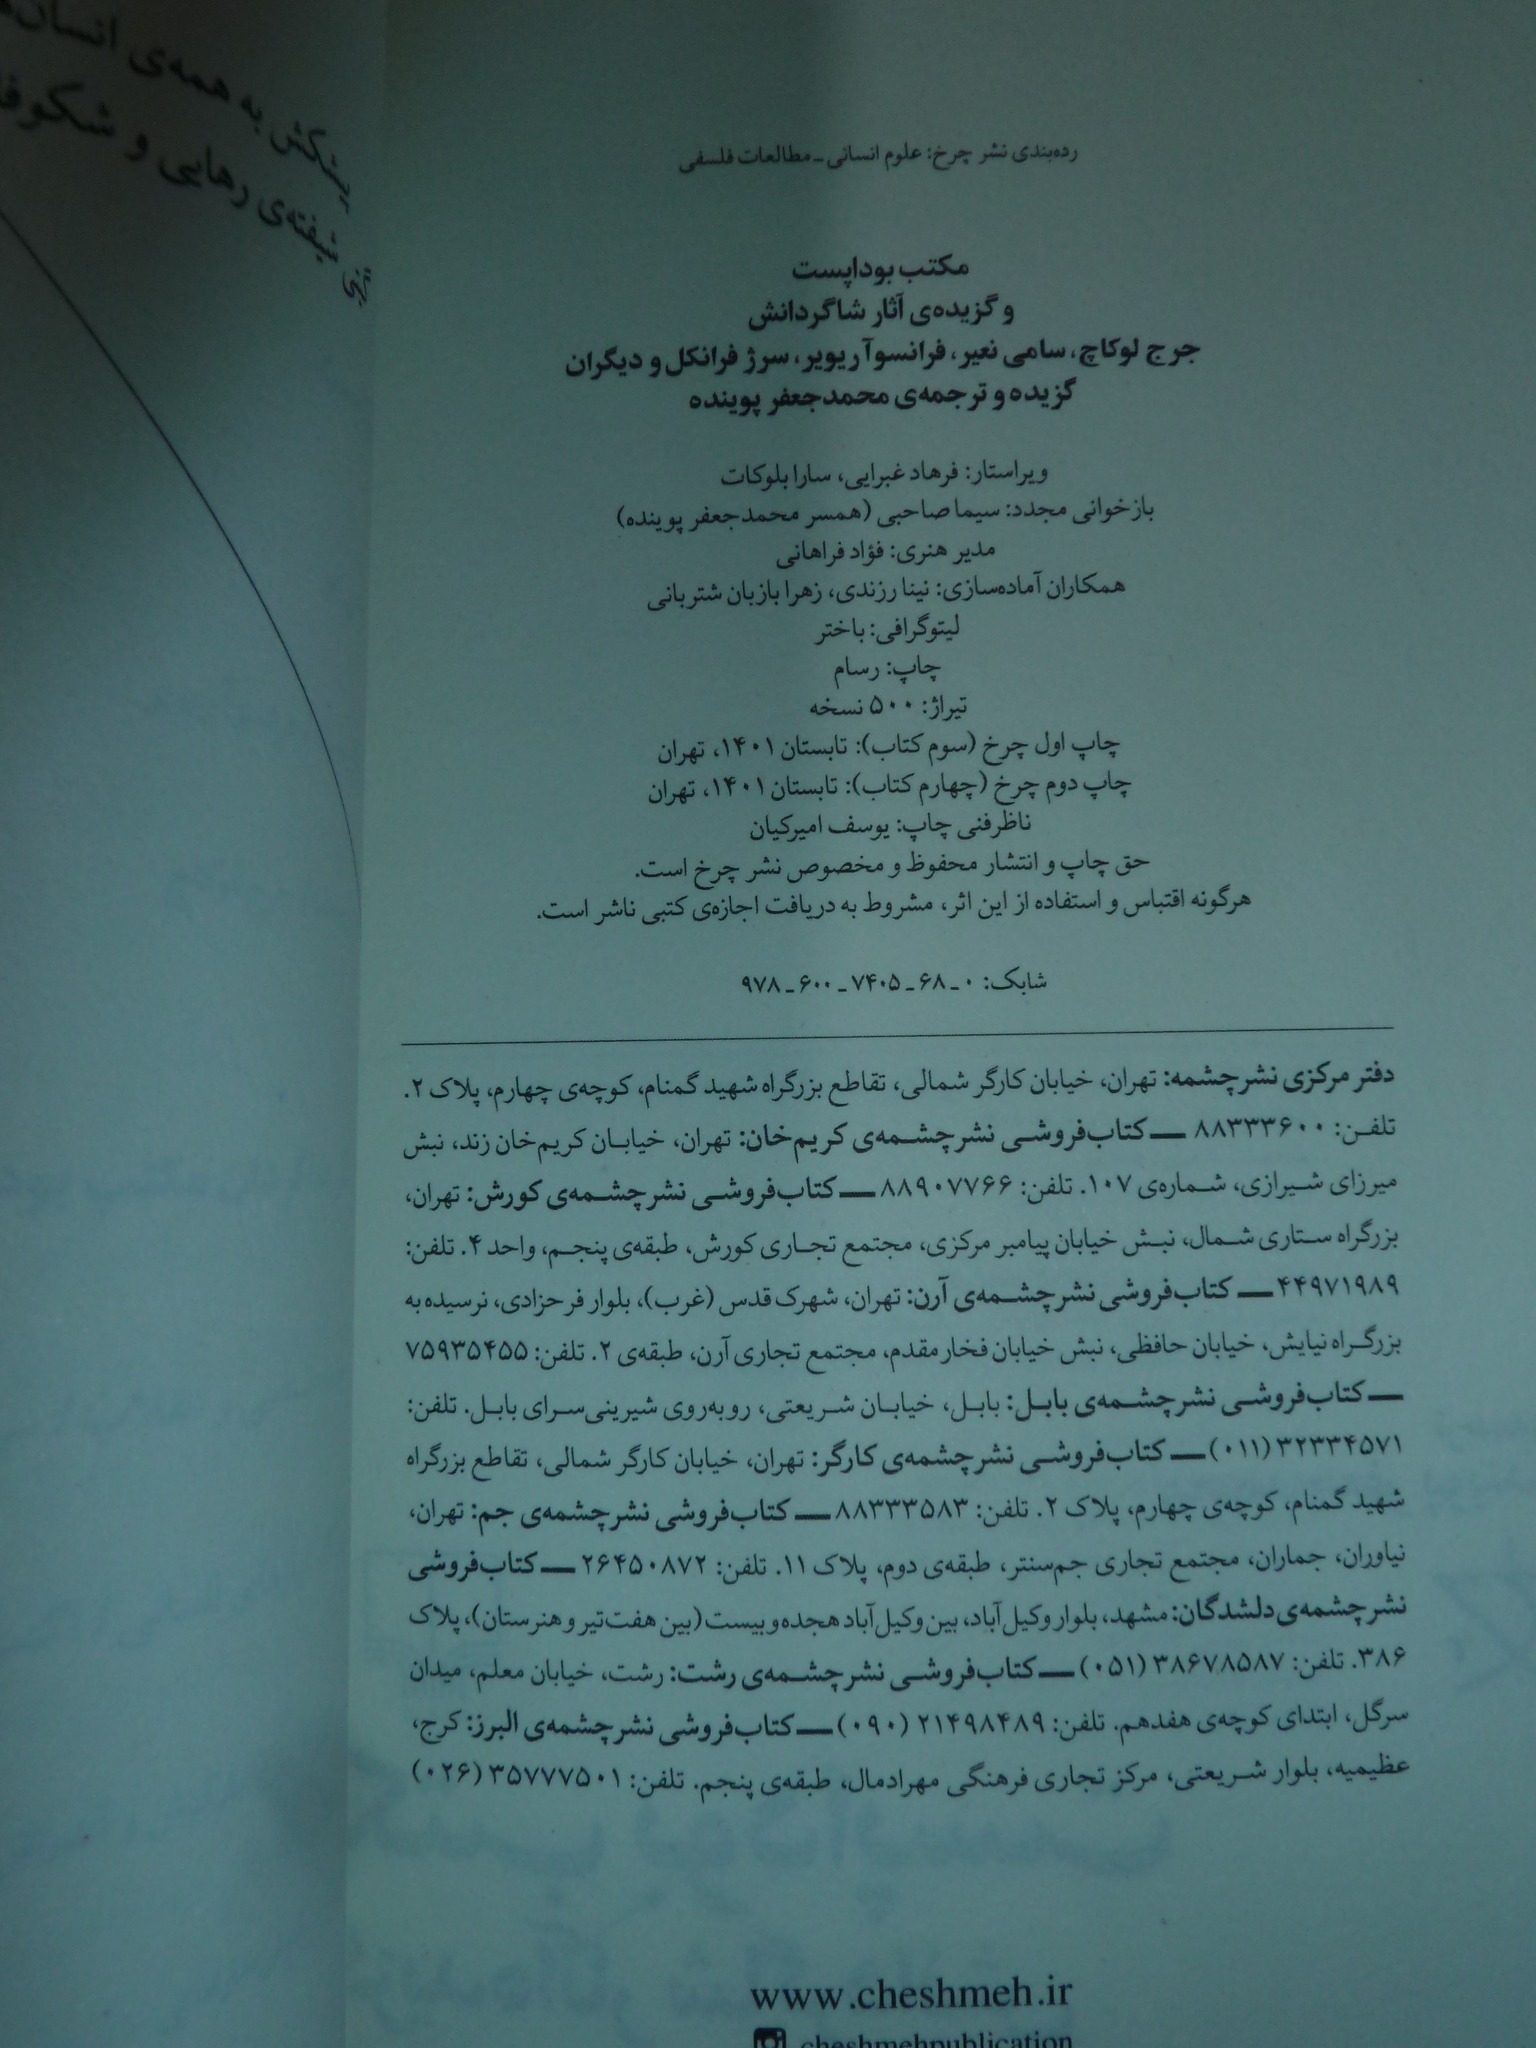 رده‌بندی نشر چرخ: علوم انسانی ـ مطالعات فلسفی
مکتب بوداپست
و گزیده‌ی آثار شاگردانش
جرج لوکاچ، سامی نعیر، فرانسوآ ریویر، سرژ فرانکل و دیگران
گزیده و ترجمه‌ی محمدجعفر پوینده
ویراستار: فرهاد غبرایی، سارا بلوکات
بازخوانی مجدد: سیما صاحبی (همسر محمدجعفر پوینده)
مدیر هنری: فؤاد فراهانی
همکاران آماده‌سازی: نینا رزندی، زهرا بازبان شتربانی
لیتوگرافی: باختر
چاپ: رسام
تیراژ: ۵۰۰ نسخه
چاپ اول چرخ (سوم کتاب): تابستان ۱۴۰۱، تهران
چاپ دوم چرخ (چهارم کتاب): تابستان ۱۴۰۱، تهران
ناظر فنی چاپ: یوسف امیرکیان
حق چاپ و انتشار محفوظ و مخصوص نشر چرخ است.
هرگونه اقتباس و استفاده از این اثر، مشروط به دریافت اجازه‌ی کتبی ناشر است.
شابک: ۰ـ۶۸ـ۷۴۰۵ـ۶۰۰ـ۹۷۸
دفتر مرکزی نشرچشمه: تهران، خیابان کارگر شمالی، تقاطع بزرگراه شهید گمنام، کوچه‌ی چهارم، پلاک ۲.
تلفن: ۸۸۳۳۳۶۰۰ ــ کتاب‌فروشی نشرچشمه‌ی کریم‌خان: تهران، خیابان کریم‌خان زند، نبش
میرزای شیرازی، شماره‌ی ۱۰۷. تلفن: ۸۸۹۰۷۷۶۶ ــ کتاب‌فروشی نشرچشمه‌ی کورش: تهران،
بزرگراه ستاری شمال، نبش خیابان پیامبر مرکزی، مجتمع تجاری کورش، طبقه‌ی پنجم، واحد ۴. تلفن:
۴۴۹۷۱۹۸۹ ــ کتاب‌فروشی نشرچشمه‌ی آرن: تهران، شهرک قدس (غرب)، بلوار فرحزادی، نرسیده به
بزرگراه نیایش، خیابان حافظی، نبش خیابان فخارمقدم، مجتمع تجاری آرن، طبقه‌ی ۲. تلفن: ۷۵۹۳۵۴۵۵
ــ کتاب‌فروشی نشرچشمه‌ی بابل: بابل، خیابان شریعتی، روبه‌روی شیرینی‌سرای بابل. تلفن:
۳۲۳۳۴۵۷۱ (۰۱۱) ــ کتاب‌فروشی نشرچشمه‌ی کارگر: تهران، خیابان کارگر شمالی، تقاطع بزرگراه
شهید گمنام، کوچه‌ی چهارم، پلاک ۲. تلفن: ۸۸۳۳۳۵۸۳ ــ کتاب‌فروشی نشرچشمه‌ی جم: تهران،
نیاوران، جماران، مجتمع تجاری جم‌سنتر، طبقه‌ی دوم، پلاک ۱۱. تلفن: ۲۶۴۵۰۸۷۲ ــ کتاب‌فروشی
نشرچشمه‌ی دلشدگان: مشهد، بلوار وکیل‌آباد، بین وکیل‌آباد هجده و بیست (بین هفت‌تیر و هنرستان)، پلاک
۳۸۶. تلفن: ۳۸۶۷۸۵۸۷ (۰۵۱) ــ کتاب‌فروشی نشرچشمه‌ی رشت: رشت، خیابان معلم، میدان
سرگل، ابتدای کوچه‌ی هفدهم. تلفن: ۲۱۴۹۸۴۸۹ (۰۹۰) ــ کتاب‌فروشی نشرچشمه‌ی البرز: کرج،
عظیمیه، بلوار شریعتی، مرکز تجاری فرهنگی مهرادمال، طبقه‌ی پنجم. تلفن: ۳۵۷۷۷۵۰۱ (۰۲۶)
www.cheshmeh.ir
cheshmehpublication
به همه‌ی
رهایی و